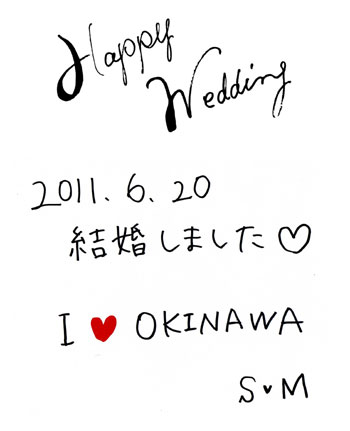 Happy
Wedding
2011.6.20
結婚しました♡
I ♥ OKINAWA
S♥M